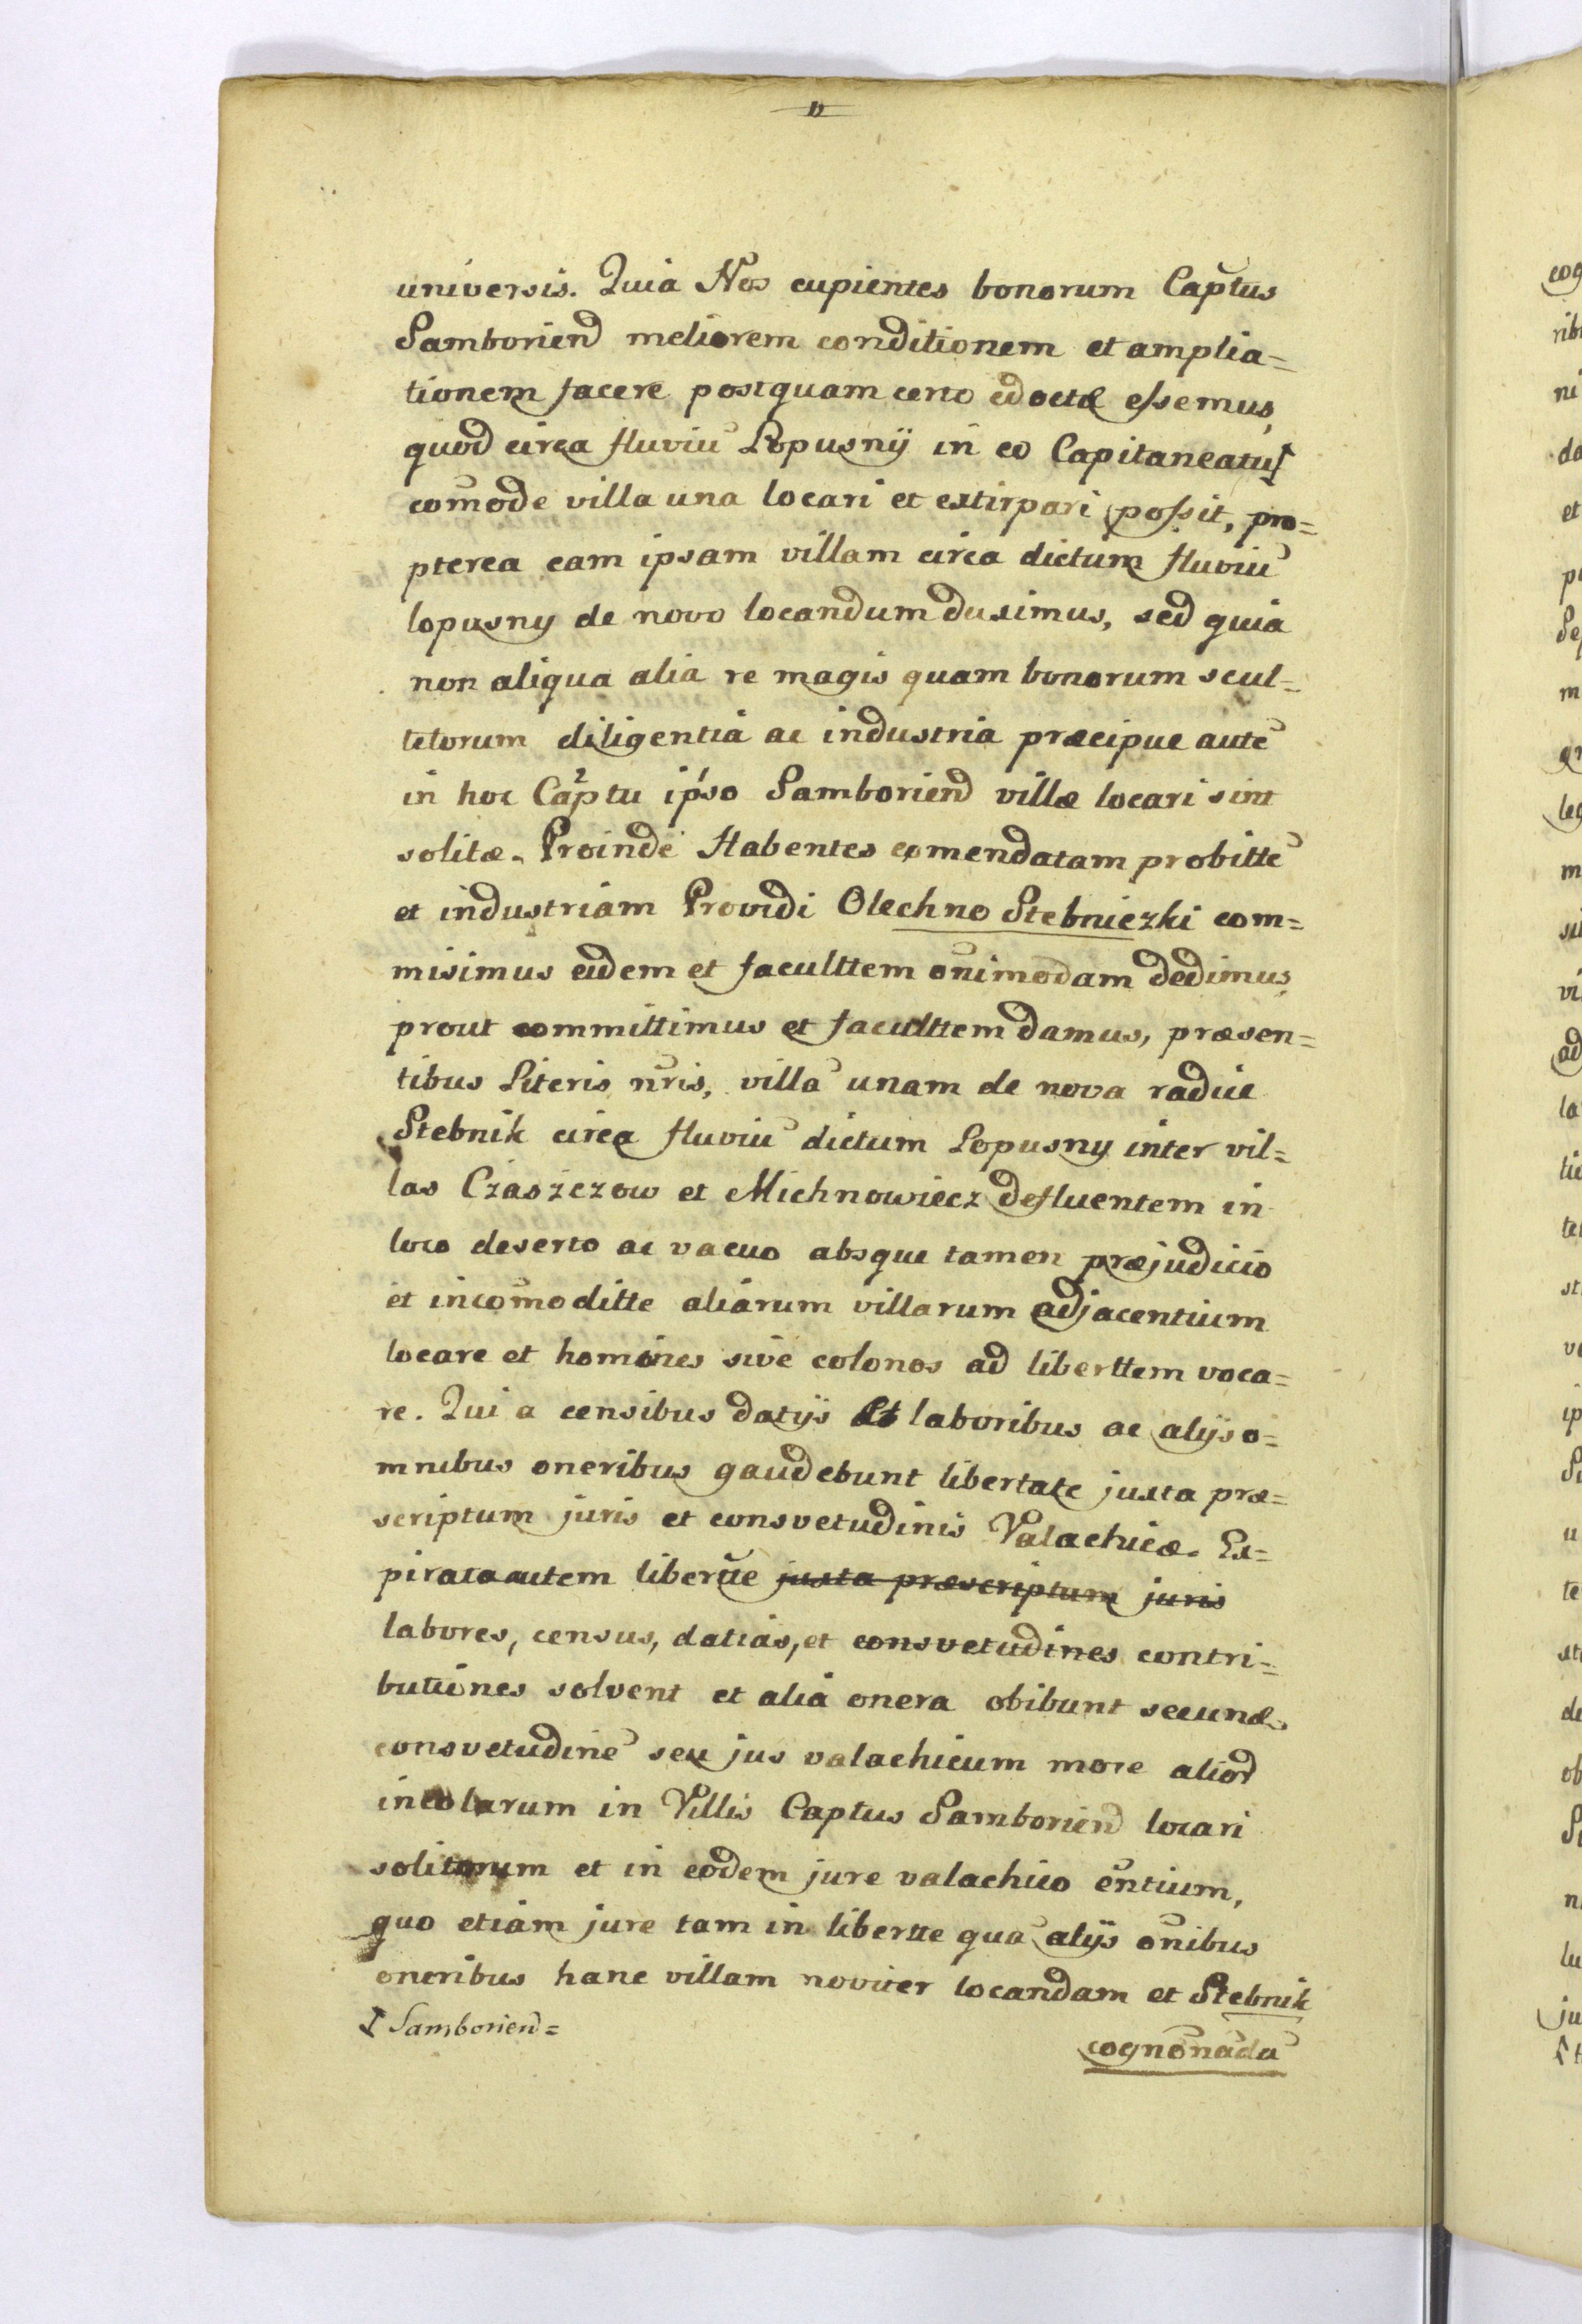 universis. Quia Nos cupientes bonorum Cap̃tus
Samboriend meliorem conditionem et amplia=
tionem facere postquam certo edoctæ essemus,
quod circa fluviũ Lopusnÿ in eo Capitaneatu
com̃ode villa una locari et extirpari possit, pro=
pterea eam ipsam villam circa dictum fluviũ
lopusny de novo locandum duximus, sed quia
non aliqua alia re magis quam bonorum scul=
tetorum diligentia ac industria præcipue autẽ
in hoc Captu ipso Samboriend villæ locari sint
solitæ. Proinde Habentes comendatam probittẽ
et industriam Providi Olechno Stebniczki com=
misimus eidem et faculttem om̃imodam dedimus,
prout committimus et faculttem damus, præsen=
tibus Literis nr̃is, villã unam de nova radice
Stebnik circa fluviũ dictum Lopusny inter vil=
las Czaszczow et Michnowiecz defluentem in
loco deserto ac vacuo absque tamen præjudicio
et incom̃oditte aliarum villarum adjacentium
locare et homines sive colonos ad liberttem voca=
re. Qui a censibus datÿs et laboribus ac alÿs o=
mnibus oneribus gaudebunt libertate juxta præ=
scriptum juris et consvetudinis Valachicæ. Ex=
pirata autem libertte juxta præscriptum juris
labores, census, datias, et consvetudines contri=
butiones solvent et alia onera obibunt secund.
consvetudinẽ seu jus valachicum more alior
incolarum in Villis Captus Samboriend locari
solitorum et in eodem jure valachico ẽntium,
quo etiam jure tam in libertte quã alÿs om̃ibus
oneribus hanc villam noviter locandam et Stebnik
Samboriend=
cognõnadã